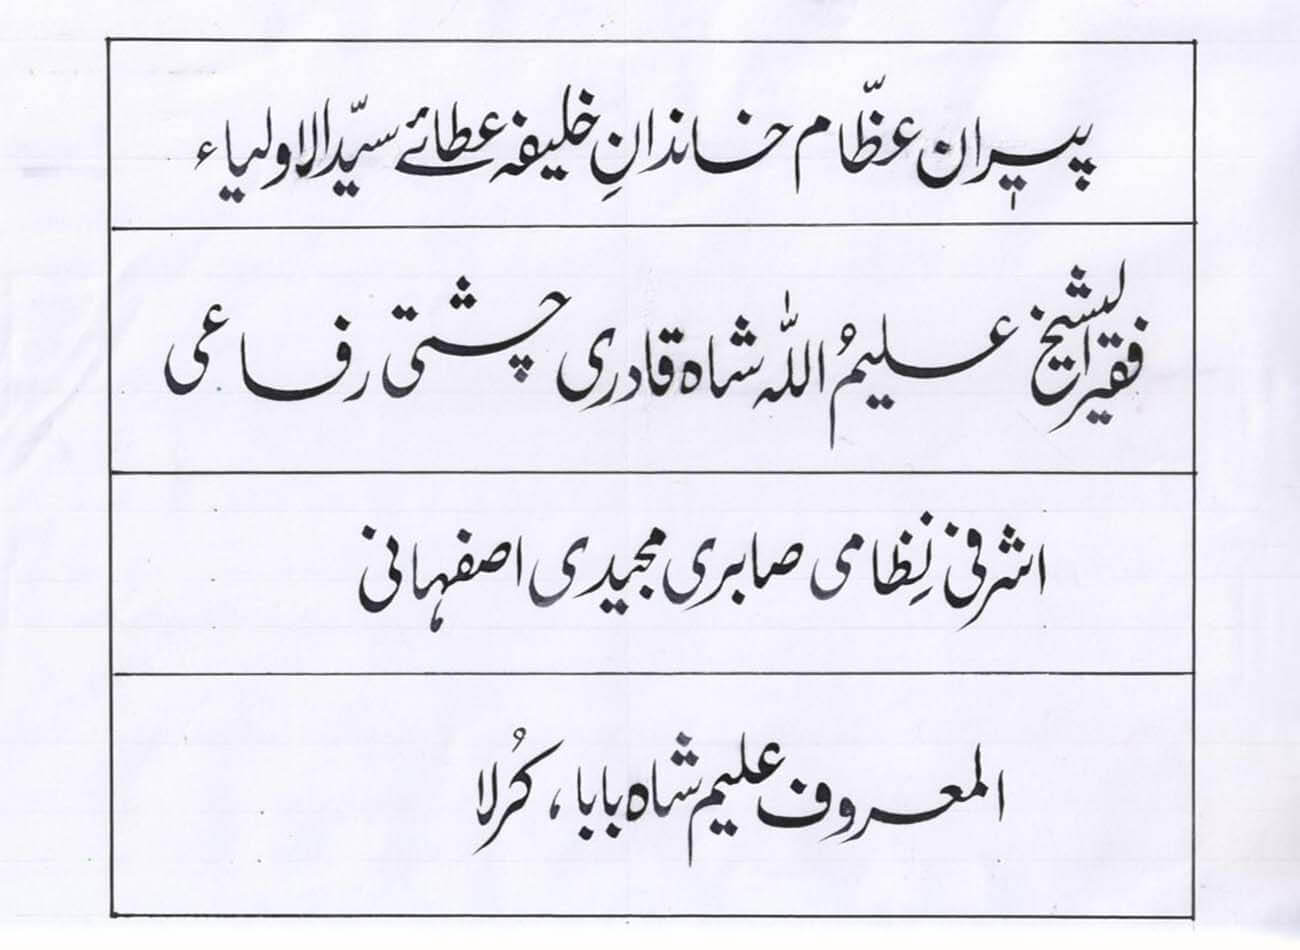 پیرانِ عظّام خاندانِ خلیفہ عطائے سیّد الاولیاء
فقیر الشیخ علیمُ اللہ شاہ قادری چشتی رفاعی
اشرفی نِظامی صابری مجیدی اصفہانی
المعروف علیم شاہ بابا، کُرلا